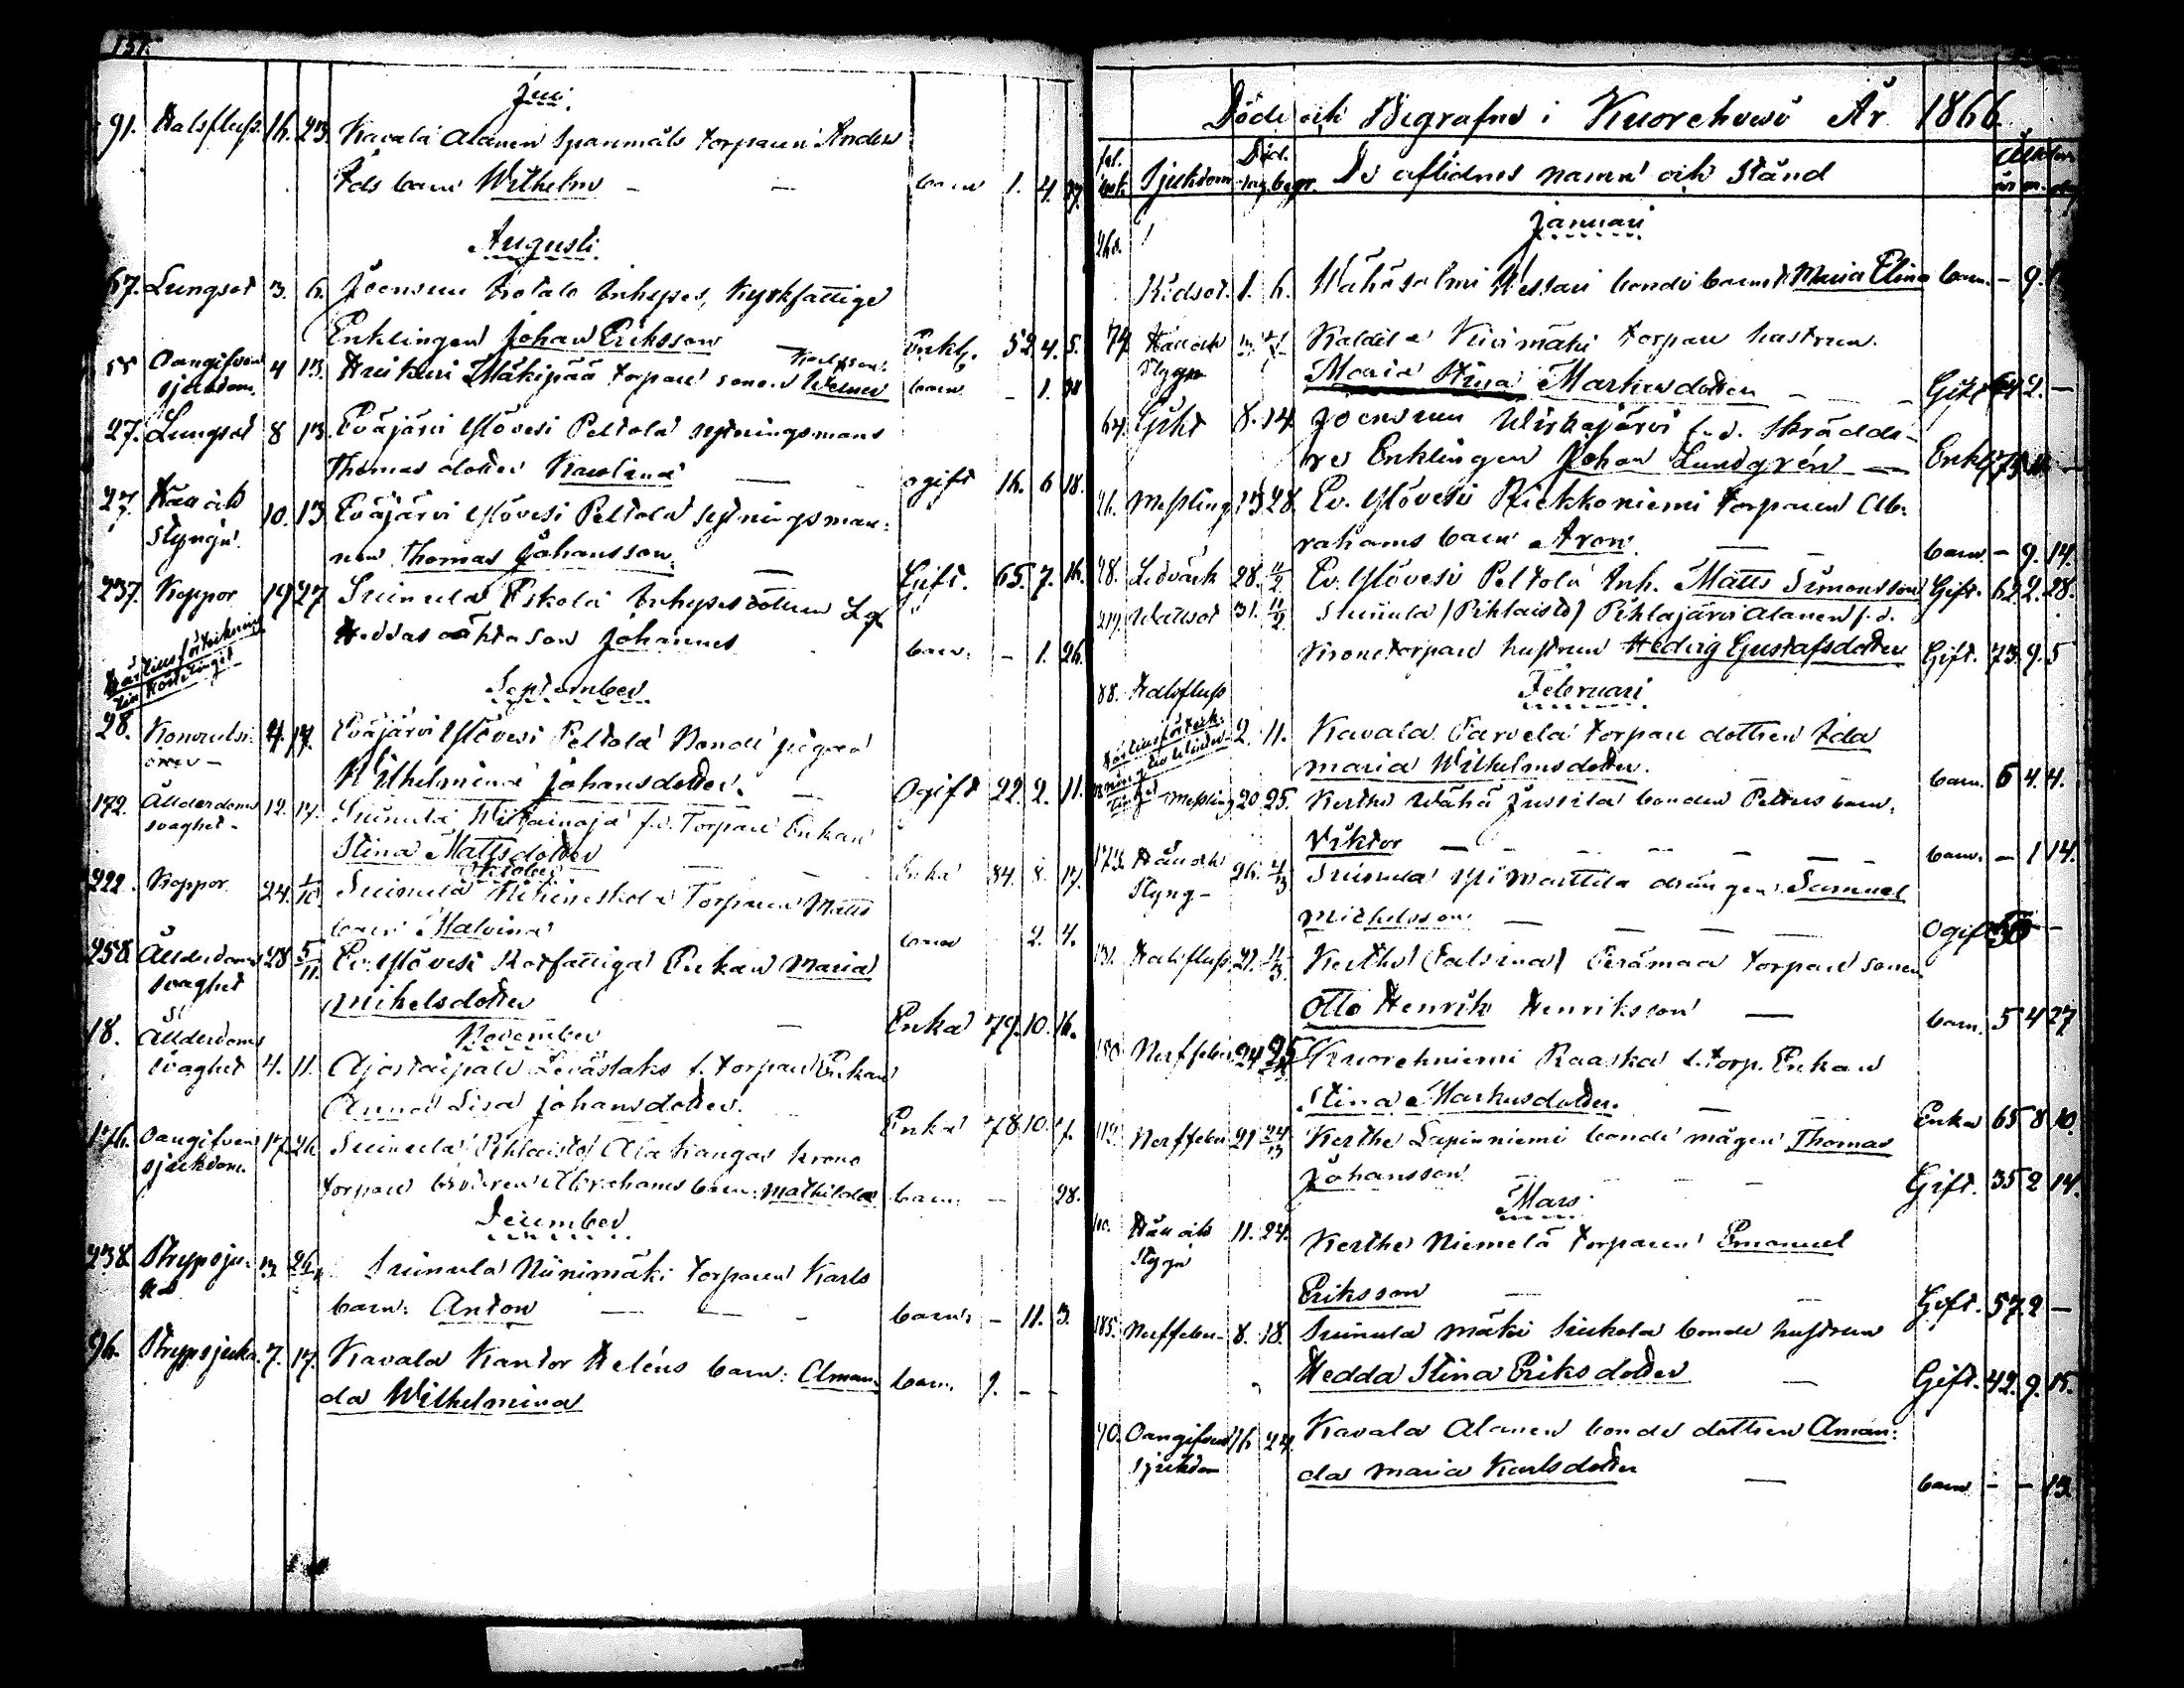 151.
Juli
91. Halsfluss. 16. 23. Kavala Alanen Spanmåls torparen Anders
Fds barn Wilhelm - - barn 1. 4.
Augusti
67. Lungsot 3. 6. Joensuu Inhyses, Kyrkfattige
Enklingen Johan Eriksson Enkl. 52 4. 5.
55 Oangifven 4 13. Mäkipää torpare sonen Karlsson
sjukdom. barn - 1.
27. Lungsot 8 13. Eväjärvi Ylövesi Peltola sytningsmans
Thomas dotter Karolina - ogift 16. 6 18.
27. Håll och 10. 13 Eväjärvi Ylövesi Peltola sytningsman-
Styngn. nen Thomas Johansson. - Gift. 65. 7. 16.
237. Koppor 19 27 Suinula Eskola Inhyses
Heddas oäkta son Johannes barn. - 1. 26.
September
28. Konvulsi- 4. 17. Eväjärvi Ylövesi Peltola Bonde pigan
oner - Wilhelmina Johansdotter. - Ogift 22. 2. 11.
172. Ållderdoms 12. 17. Suinula f.d. Torpare Enkan
svaghet - Stina Mattsdotter - - Enka 84. 8. 17.
October
222. Koppor 24. 1/10. Suinula Torparen Matts
barn Malvina barn 2. 4.
258. Ållderdoms 28 5/11. Ev. Ylövesi Rotfattiga Enkan Maria
svaghet Mihelsdotter - Enka 79. 10. 16.
November
18. Ållderdoms
svaghet 4. 11. Ajostaipale Levästaks f. torpare Enkan
Anna Lisa Johansdotter. Enka 78. 10. 7.
176. Oangifven 17. 26. Suinula Pihlaisto Ala Kangas krono
sjukdom. torpare brodren Abrahams barn: Mathilda barn: - 28.
December
238. Strypsju- 13. 26. Suinula Niinimäki torparen Karls
ka barn: Anton - - - barn: - 11. 3.
96. Strypsjuka. 7. 17. Kavala Kantor Heléns barn: Aman-
da Wilhelmina barn. 9. - -
Döde och Begrafne i Kuorehvesi År 1866.
Död. Ålder
Sjukdom dag. begr. De aflidnes namn och Stånd år m. dag
Januari
268.
Ridsot. 1. 6. Wähäsalmi Wessari bonde barnet Maria Elina barn. - 9.
74. Håll och Kaldila Kivimäki torpare hustrun.
Stygn Maria Stina Markusdotter - - - Gift 64 2. -
64. Gikt 8. 14 Joensuu Wirkajärvi f.d. Skrädda-
re Enklingen Johan Lundgrén - - Enkl.
26. Messling 28. Ev. Ylövesi Riekkoniemi torparen Ab-
rahams barn Aron. - - barn - 9. 14.
28. Ledvärk 28. 11/2. Ev. Ylövesi Peltola Inh. Matts Simonsson Gift. 62. 2. 28.
219. Wattsot 31. 11/2. Suinula (Pihlaisto) Pihlajärvi Alanen f.d.
Kronotorpare hustrun Hedvig Gustafsdotter Gift. 73. 9. 5
Februari
88. Halsfluss
2. 11. Kavala Parvela torpare dottren Ida
Maria Wilhelmsdotter. - barn. 6 4. 4.
Messling 20. 25. Kerthe Wähä Jussila bonden Petters barn.
Viktor - - - - - barn. - 1 14.
173. Håll och 26. 4/3 Suinula Yli Marttila drängen Samuel
Styng - Michelsson. - - - - Ogift
131. Halsfluss. 21. 4/3. Kerthe (Talsina) Perämaa torpare sonen
Otto Henrik Henriksson - barn. 5 4 27
180. Nerffeber. 24 Kuorehniemi Raaska f. torp. Enkan
Stina Markusdotter. - Enka 65 8 10.
112. Nerffeber 21 Kerthe Lapinniemi bonde mågen Thomas
Johansson - - - Gift. 35 2 14.
Mars
Håll och 11. 24. Kerthe Niemelä torparen Emanuel
Stygn Eriksson - - Gift. 57. 2 -
185. Nerffeber- 8. 18. Suinula Mäki Siukola bonde hustrun
Hedda Stina Eriksdotter - Gift. 42. 9. 15.
90. Oangifven 16 24. Kavala Alanen bonde dottren Aman-
sjukdom da Maria Karlsdotter - barn - - 13.